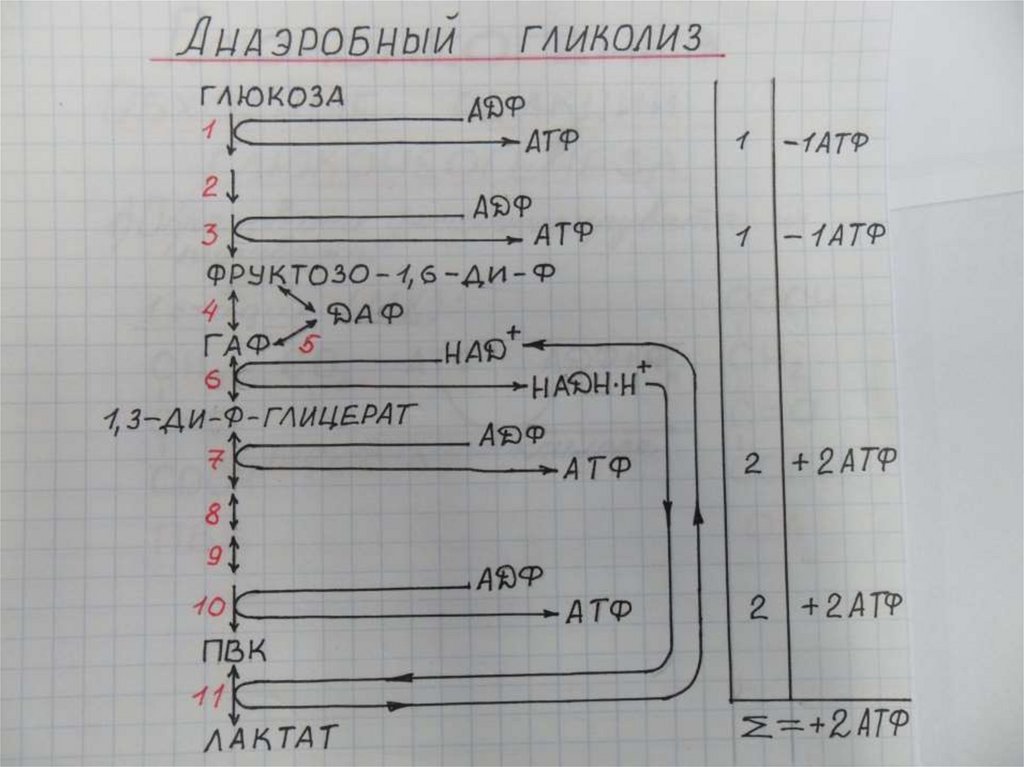 АНАЭРОБНЫЙ ГЛИКОЛИЗ
ГЛЮКОЗА
АДФ
1
АТФ
1 -1АТФ
2
АДФ
3
АТФ
1 -1АТФ
ФРУКТОЗО-1,6-ДИ-Ф
4
ДАФ
ГАФ 5
НАD+
6
НАDН·Н+
1,3-ДИ-Ф-ГЛИЦЕРАТ
АДФ
7
АТФ
2 +2АТФ
8
9
АДФ
10
АТФ
2 +2АТФ
ПВК
11
ЛАКТАТ
Σ=+2АТФ